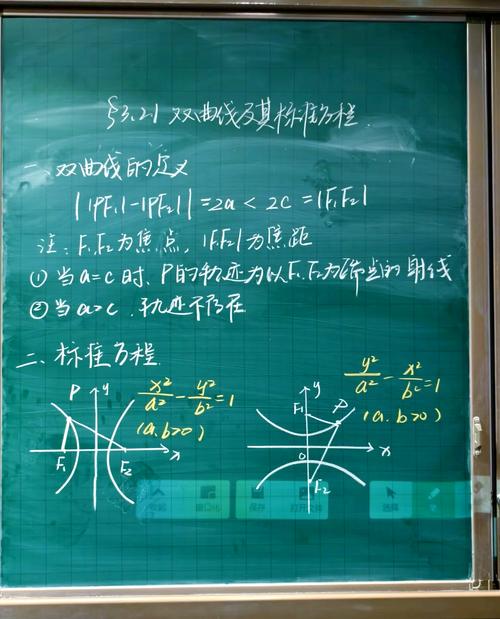 §3.2.1 双曲线及其标准方程
一、双曲线的定义
||PF₁|-|PF₂||=2a<2c=|F₁F₂|
注:F₁,F₂为焦点,|F₁F₂|为焦距
①当a=c时,P的轨迹为以F₁,F₂为端点的射线
②当a>c,轨迹不存在
二、标准方程
P y
x²/a²-y²/b²=1
(a,b>0)
F₁ F₂ x
y²/a²-x²/b²=1
(a,b>0)
y
F₁ P
O x
F₂
收起 窗口化 保存 打开文件 选择